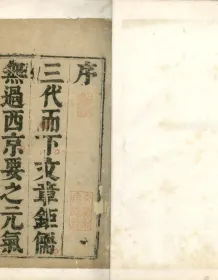 序
三代而下文章鉅儒
無過西京要之元氣